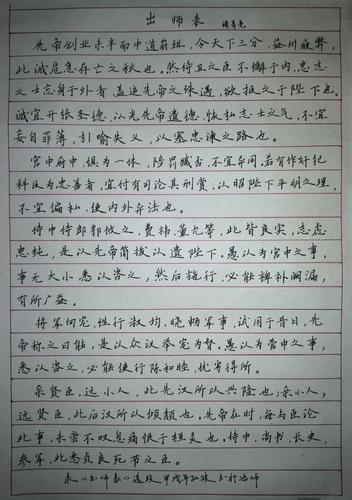 出师表 诸葛亮
先帝创业未半而中道崩殂,今天下三分,益州疲弊,
此诚危急存亡之秋也。然侍卫之臣不懈于内,忠志
之士忘身于外者,盖追先帝之殊遇,欲报之于陛下也。
诚宜开张圣德,以光先帝遗德,恢弘志士之气,不宜
妄自菲薄,引喻失义,以塞忠谏之路也。
宫中府中,俱为一体,陟罚臧否,不宜异同,若有作奸犯
科及为忠善者,宜付有司论其刑赏,以昭陛下平明之理,
不宜偏私,使内外异法也。
侍中侍郎郭攸之,费祎,董允等,此皆良实,志虑
忠纯,是以先帝简拔以遗陛下。愚以为宫中之事,
事无大小悉以咨之,然后施行,必能裨补阙漏,
有所广益。
将军向宠,性行淑均,晓畅军事,试用于昔日,先
帝称之曰能,是以众议举宠为督。愚以为营中之事,
悉以咨之,必能使行阵和睦,优劣得所。
亲贤臣,远小人,此先汉所以兴隆也;亲小人,
远贤臣,此后汉所以倾颓也。先帝在时,每与臣论
此事,未尝不叹息痛恨于桓灵也。侍中,尚书,长史,
参军,此悉贞良死节之臣。
录《出师表》 甲戌年